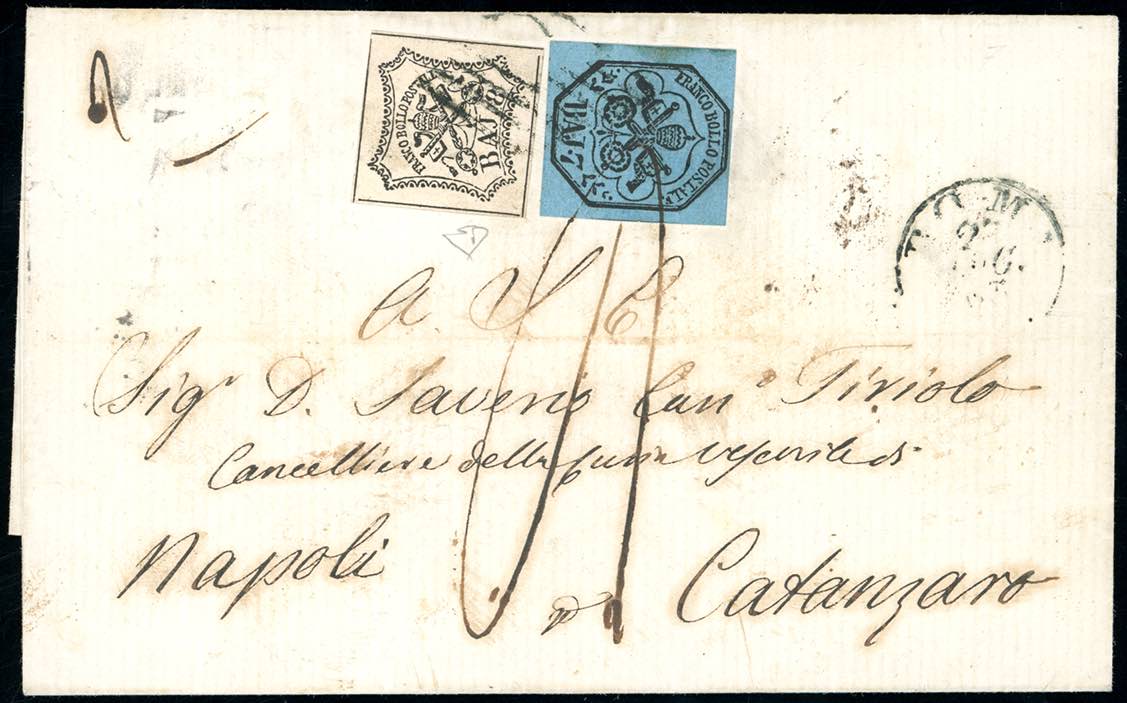 2
FRANCO BOLLO POSTALE
BAJ 8
FRANCO BOLLO POSTALE
BAJ 7
ROMA
27
A. S. E.
Sigr D. Saverio Cano Tiriolo
Cancelliere della Curia Vescovile di
Napoli p Catanzaro